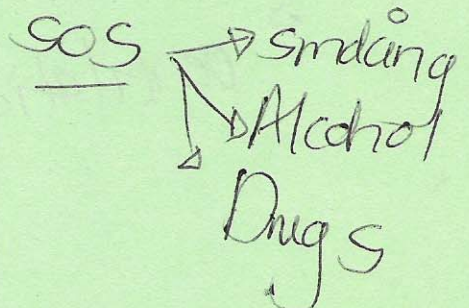 SOS → Smoking
Alcohol
Drugs